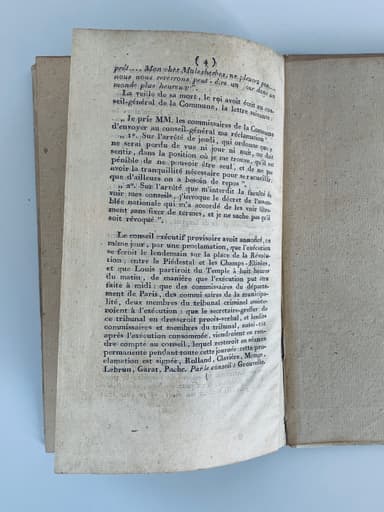 ( 4 )
prêt.... Mon cher Malesherbes, ne pleurez pas...
nous nous reverrons peut-être un jour dans un
monde plus heureux".
La veille de sa mort, le roi avoit écrit au con-
seil-général de la Commune, la lettre suivante :
„ Je prie MM. les commissaires de la Commune
d'envoyer au conseil-général ma réclamation :
„ 1°. Sur l'arrêté de jeudi, qui ordonne que je
ne serai perdu de vue ni jour ni nuit, on doit
sentir, dans la position où je me trouve, qu'il est
pénible de ne pouvoir être seul, et de ne pas
avoir la tranquilité nécessaire pour se recueillir,
que d'ailleurs on a besoin de repos".
„ 2°. Sur l'arrêté qui m'interdit la faculté de
voir mes conseils, j'invoque le décret de l'assem-
blée nationale qui m'a accordé de les voir libre-
ment sans fixer de termes, et je ne sache pas qu'il
soit révoqué".
Le conseil exécutif provisoire avoit annoncé, ce
même jour, par une proclamation, que l'exécution
se feroit le lendemain sur la place de la Révolu-
tion, entre le Piédestal et les Champs-Elisées,
et que Louis partiroit du Temple à huit heures
du matin, de manière que l'exécution put être
faite à midi : que des commissaires du départe-
ment de Paris, des commissaires de la municipa-
lité, deux membres du tribunal criminel assiste-
roient à l'exécution : que le secretaire-greffier de
ce tribunal en dresseroit procès-verbal, et lesdits
commissaires et membres du tribunal, aussi-tôt
après l'exécution consommée, viendroient en ren-
dre compte au conseil, lequel resteroit en séance
permanente pendant toute cette journée : cette pro-
clamation est signée, Rolland, Clavière, Monge,
Lebrun, Garat, Pache. Par le conseil : Grouvelle.